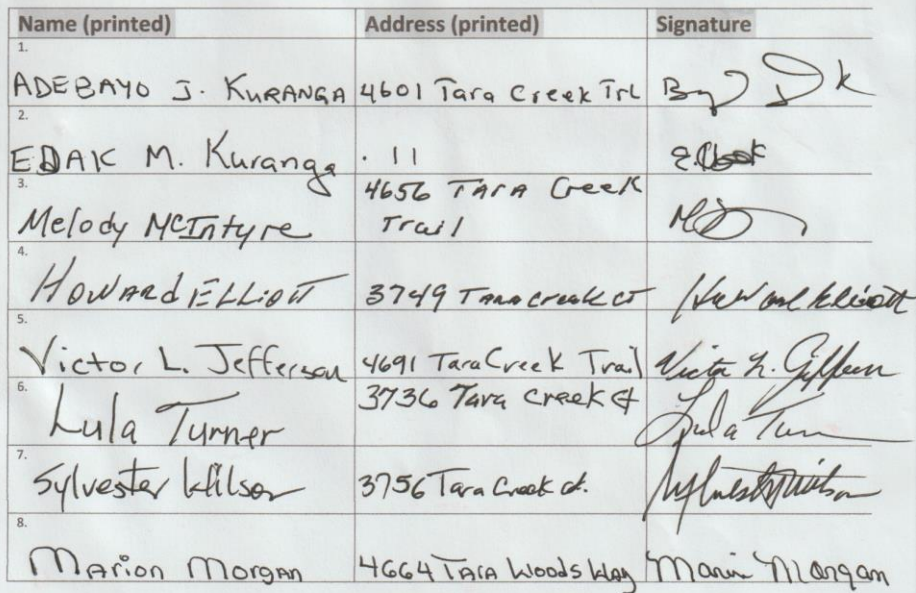 Name (printed) Address (printed) Signature
1.
ADEBAYO J. KURANGA 4601 Tara Creek Trl
2.
EDAK M. Kuranga . 11
3.
Melody McIntyre 4656 TARA Creek
Trail
4.
HOWARD ELLIOTT 3749 TARA creek ct Howard Elliott
5.
Victor L. Jefferson 4691 Tara Creek Trail Victor L. Jefferson
6.
Lula Turner 3736 Tara Creek Ct Lula Turner
7.
Sylvester Wilson 3756 Tara Creek ct. Sylvester Wilson
8.
Marion Morgan 4664 TARA Woods Way Marion Morgan